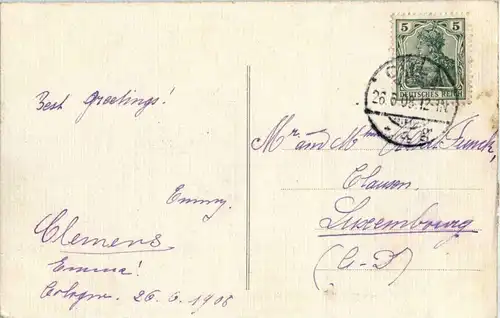 5 5
DEUTSCHES REICH
26.6.08.12-1N.
Best greetings!
Mr and Mme Funck,
Clausen.
Luxembourg
(G-D)
Emmy.
Clemens
Emma!
Cologne. 26.6.1908